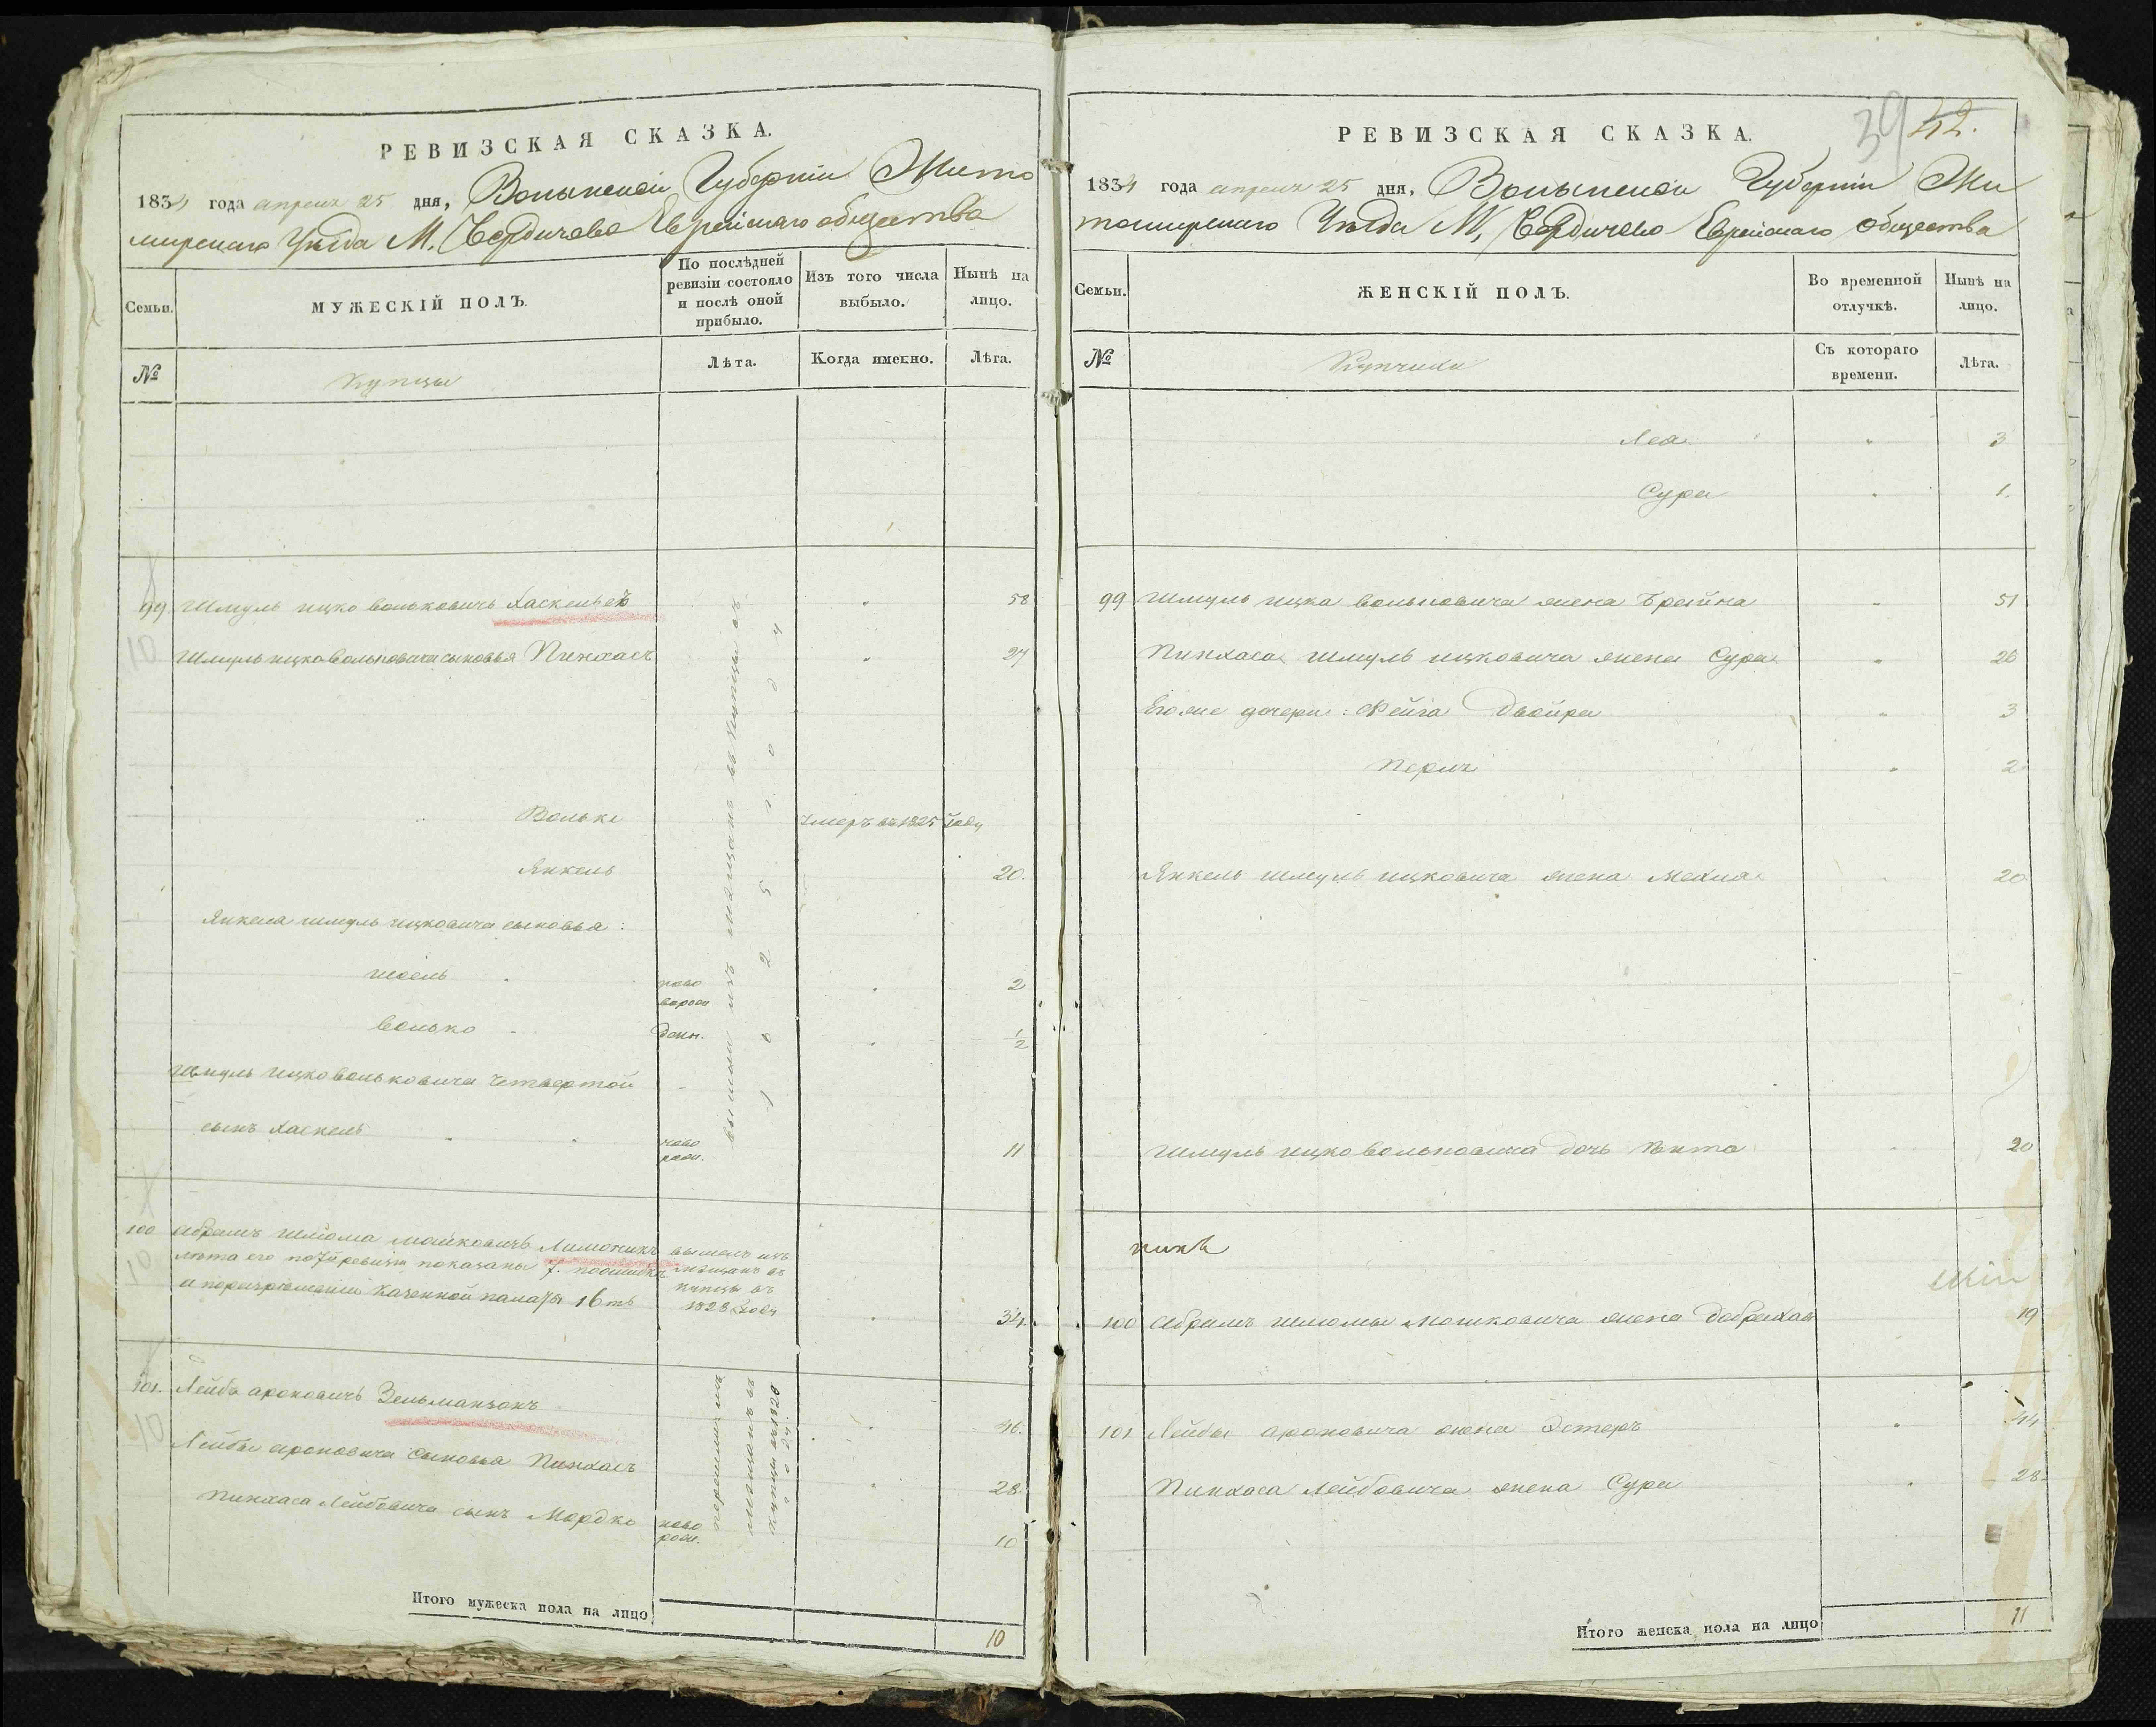 РЕВИЗСКАЯ СКАЗКА.
1834 года апреля 25 дня, Волынской Губернии Жито
мирскаго Уѣзда М. Бердичева Еврейскаго общества
Семьи.
МУЖЕСКІЙ ПОЛЪ.
По послѣдней
ревизіи состояло
и послѣ оной
прибыло.
Изъ того числа
выбыло.
Нынѣ на
лицо.
№
Купцы
Лѣта.
Когда именно.
Лѣта.
99 Шмуль ицко вольковичь Хаскельсъ 58
10 Шмуль ицко вольковича сыновья Пинхасъ 27
Вольке умеръ въ 1825 году
Янкель 20.
Янкеля шмуль ицковича сыновья:
шоель ново 2
волько 1/2
Шмуль ицко вольковича четвертой
сынъ хаскель ново рож. 11
вышли изъ мещанъ въ купцы въ
1825 году
100 Абрамъ шлiома мошковичъ Лимоникъ вышелъ изъ
лѣта его по 7й ревизіи показаны 7. мѣщанъ въ
10 купцы въ
Казенной палаты 16ть 1828 году 34.
101. Лейба ароновичъ Зельманзонъ 46.
10 Лейбы ароновича сыновья Пинхасъ 28.
Пинхаса Лейбовича сынъ Мордко ново рож. 10
перешли изъ
мещанъ въ
купцы въ 1820
году
Итого мужеска пола на лицо 10
39 42.
РЕВИЗСКАЯ СКАЗКА.
1834 года апреля 25 дня, Волынской Губернии Жи
томирскаго Уѣзда М. Бердичева Еврейскаго Общества
Семьи.
ЖЕНСКІЙ ПОЛЪ.
Во временной
отлучкѣ.
Нынѣ на
лицо.
№
Купчихи
Съ котораго
времени.
Лѣта.
Леа 3
Сура 1.
99 Шмуль ицка вольковича жена Брейна 51
Пинхаса шмуль ицковича жена Сура 26
Его же дочери: Фейга Двойра 3
Перля 2
Янкель шмуль ицковича жена Мехла 20
Шмуль ицко вольковича дочь 20
100 Абрамъ шлiомы мошковича жена 19
101 Лейбы ароновича жена Эстеръ 44
Пинхаса лейбовича жена Сура 28.
Итого женска пола на лицо 11